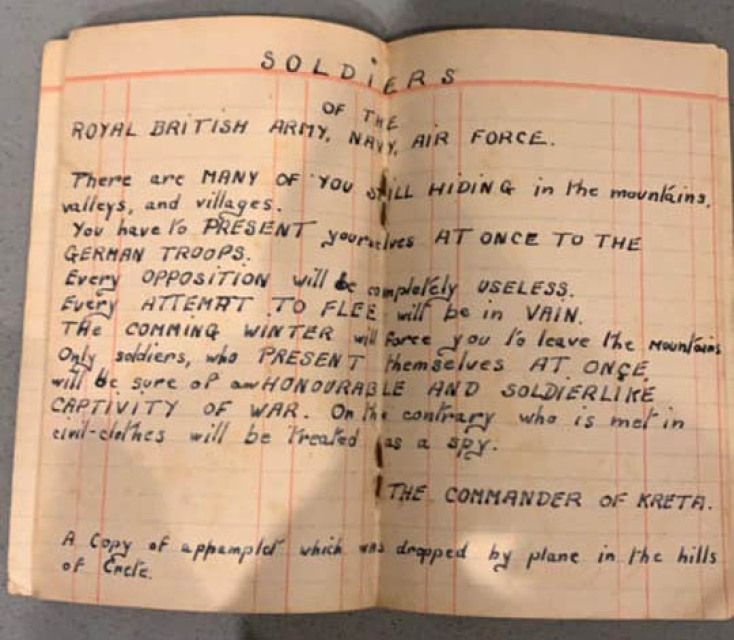 SOLDiERS
OF THE
ROYAL BRiTiSH ARMY, NAVY, AIR FORCE.
There are MANY OF YOU STILL HIDING in the mountains,
valleys, and villages.
You have to PRESENT yourselves AT ONCE TO THE
GERMAN TROOPS.
Every OPPOSITION will be completely USELESS.
Every ATTEMPT TO FLEE will be in VAIN.
THE COMMING WINTER will force you to leave the mountains
Only soldiers, who PRESENT themselves AT ONCE
will be sure of an HONOURABLE AND SOLDIERLIKE
CAPTIVITY OF WAR. On the contrary who is met in
civil-clothes will be treated as a spy.
THE COMMANDER OF KRETA.
A Copy of a phamplet which was dropped by plane in the hills
of Crete.